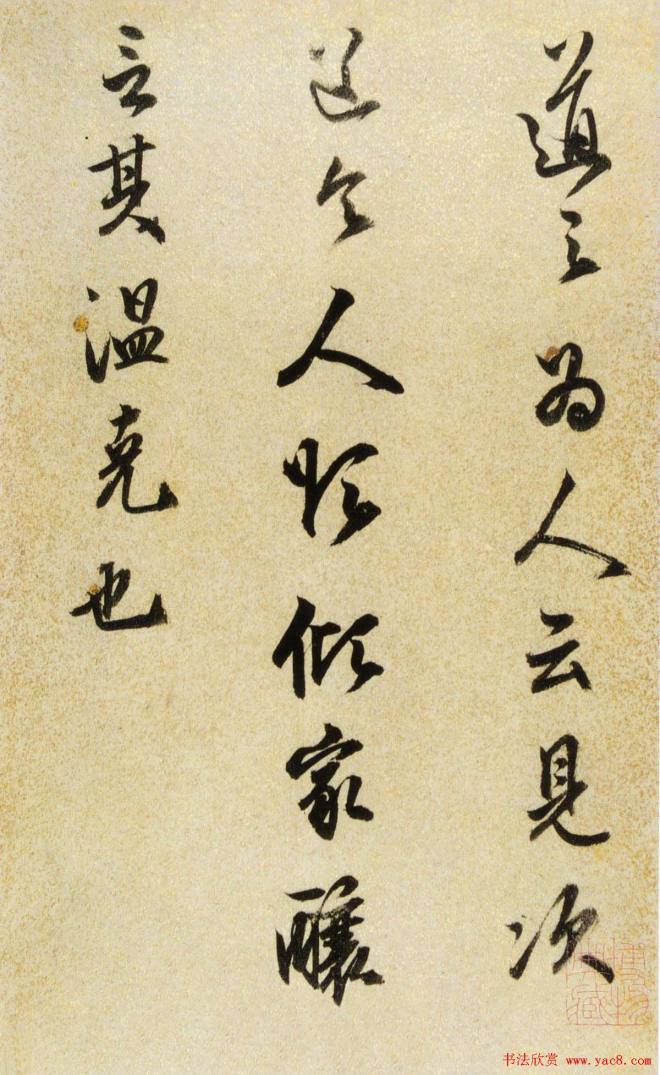 道之為人云見次
道令人欲傾家釀
言其温克也
书法欣赏 www.yac8.com